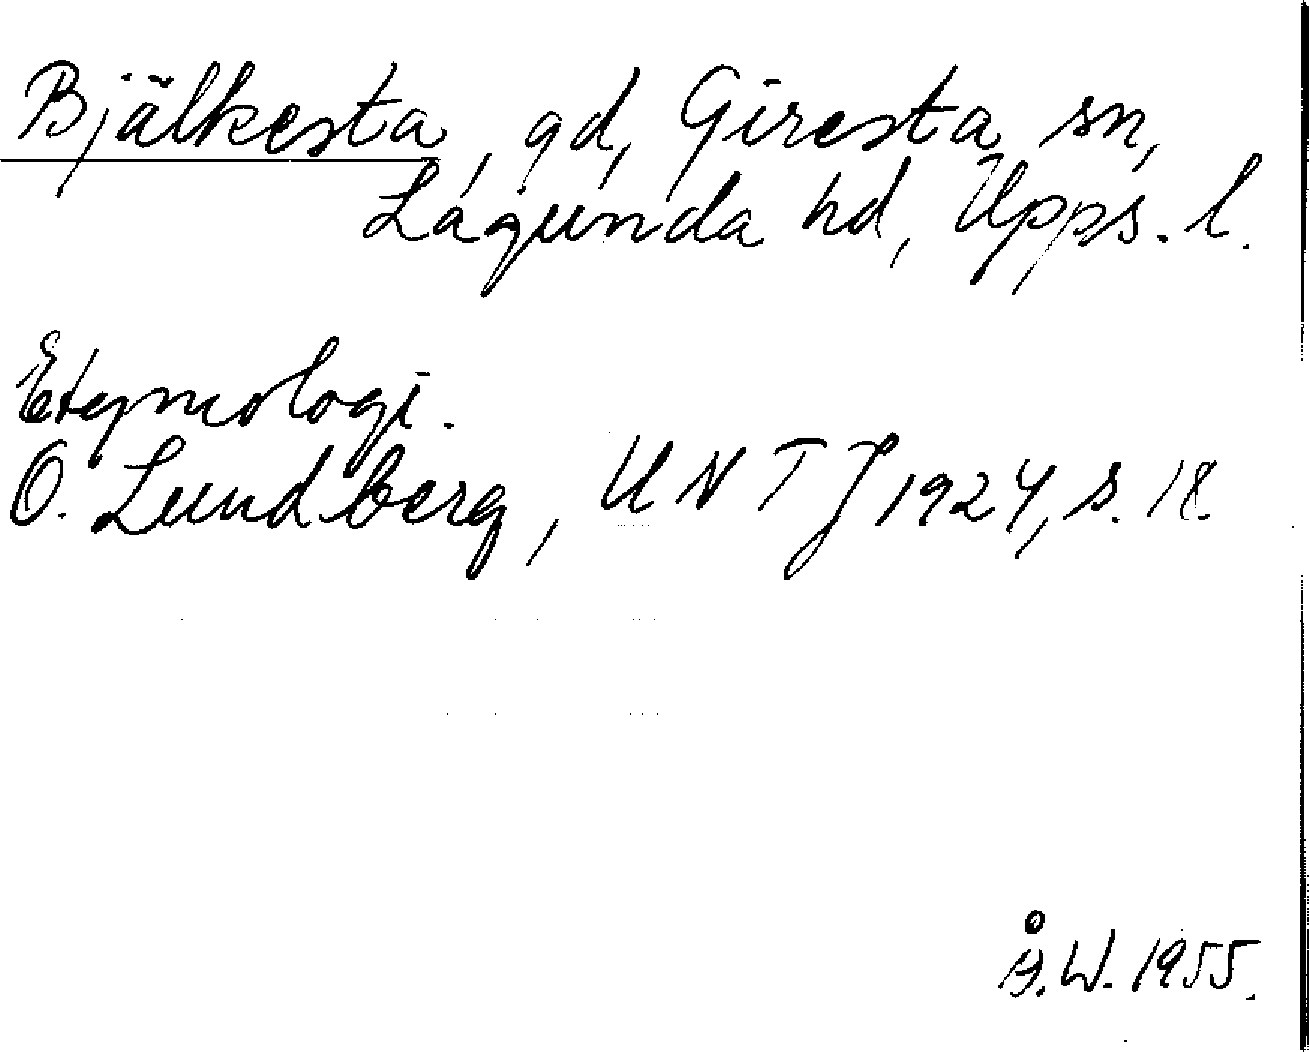 Bjälkesta, gd, Giresta sn,
Lagunda hd, Upps. l.
Etymologi.
O. Lundberg, UNTJ 1924, s. 18.
Å.W. 1955.